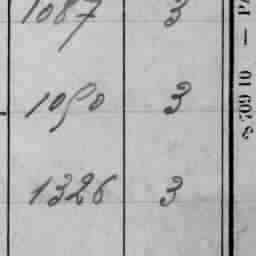 1087 3
1090 3
1326 3
S 709 10 — P